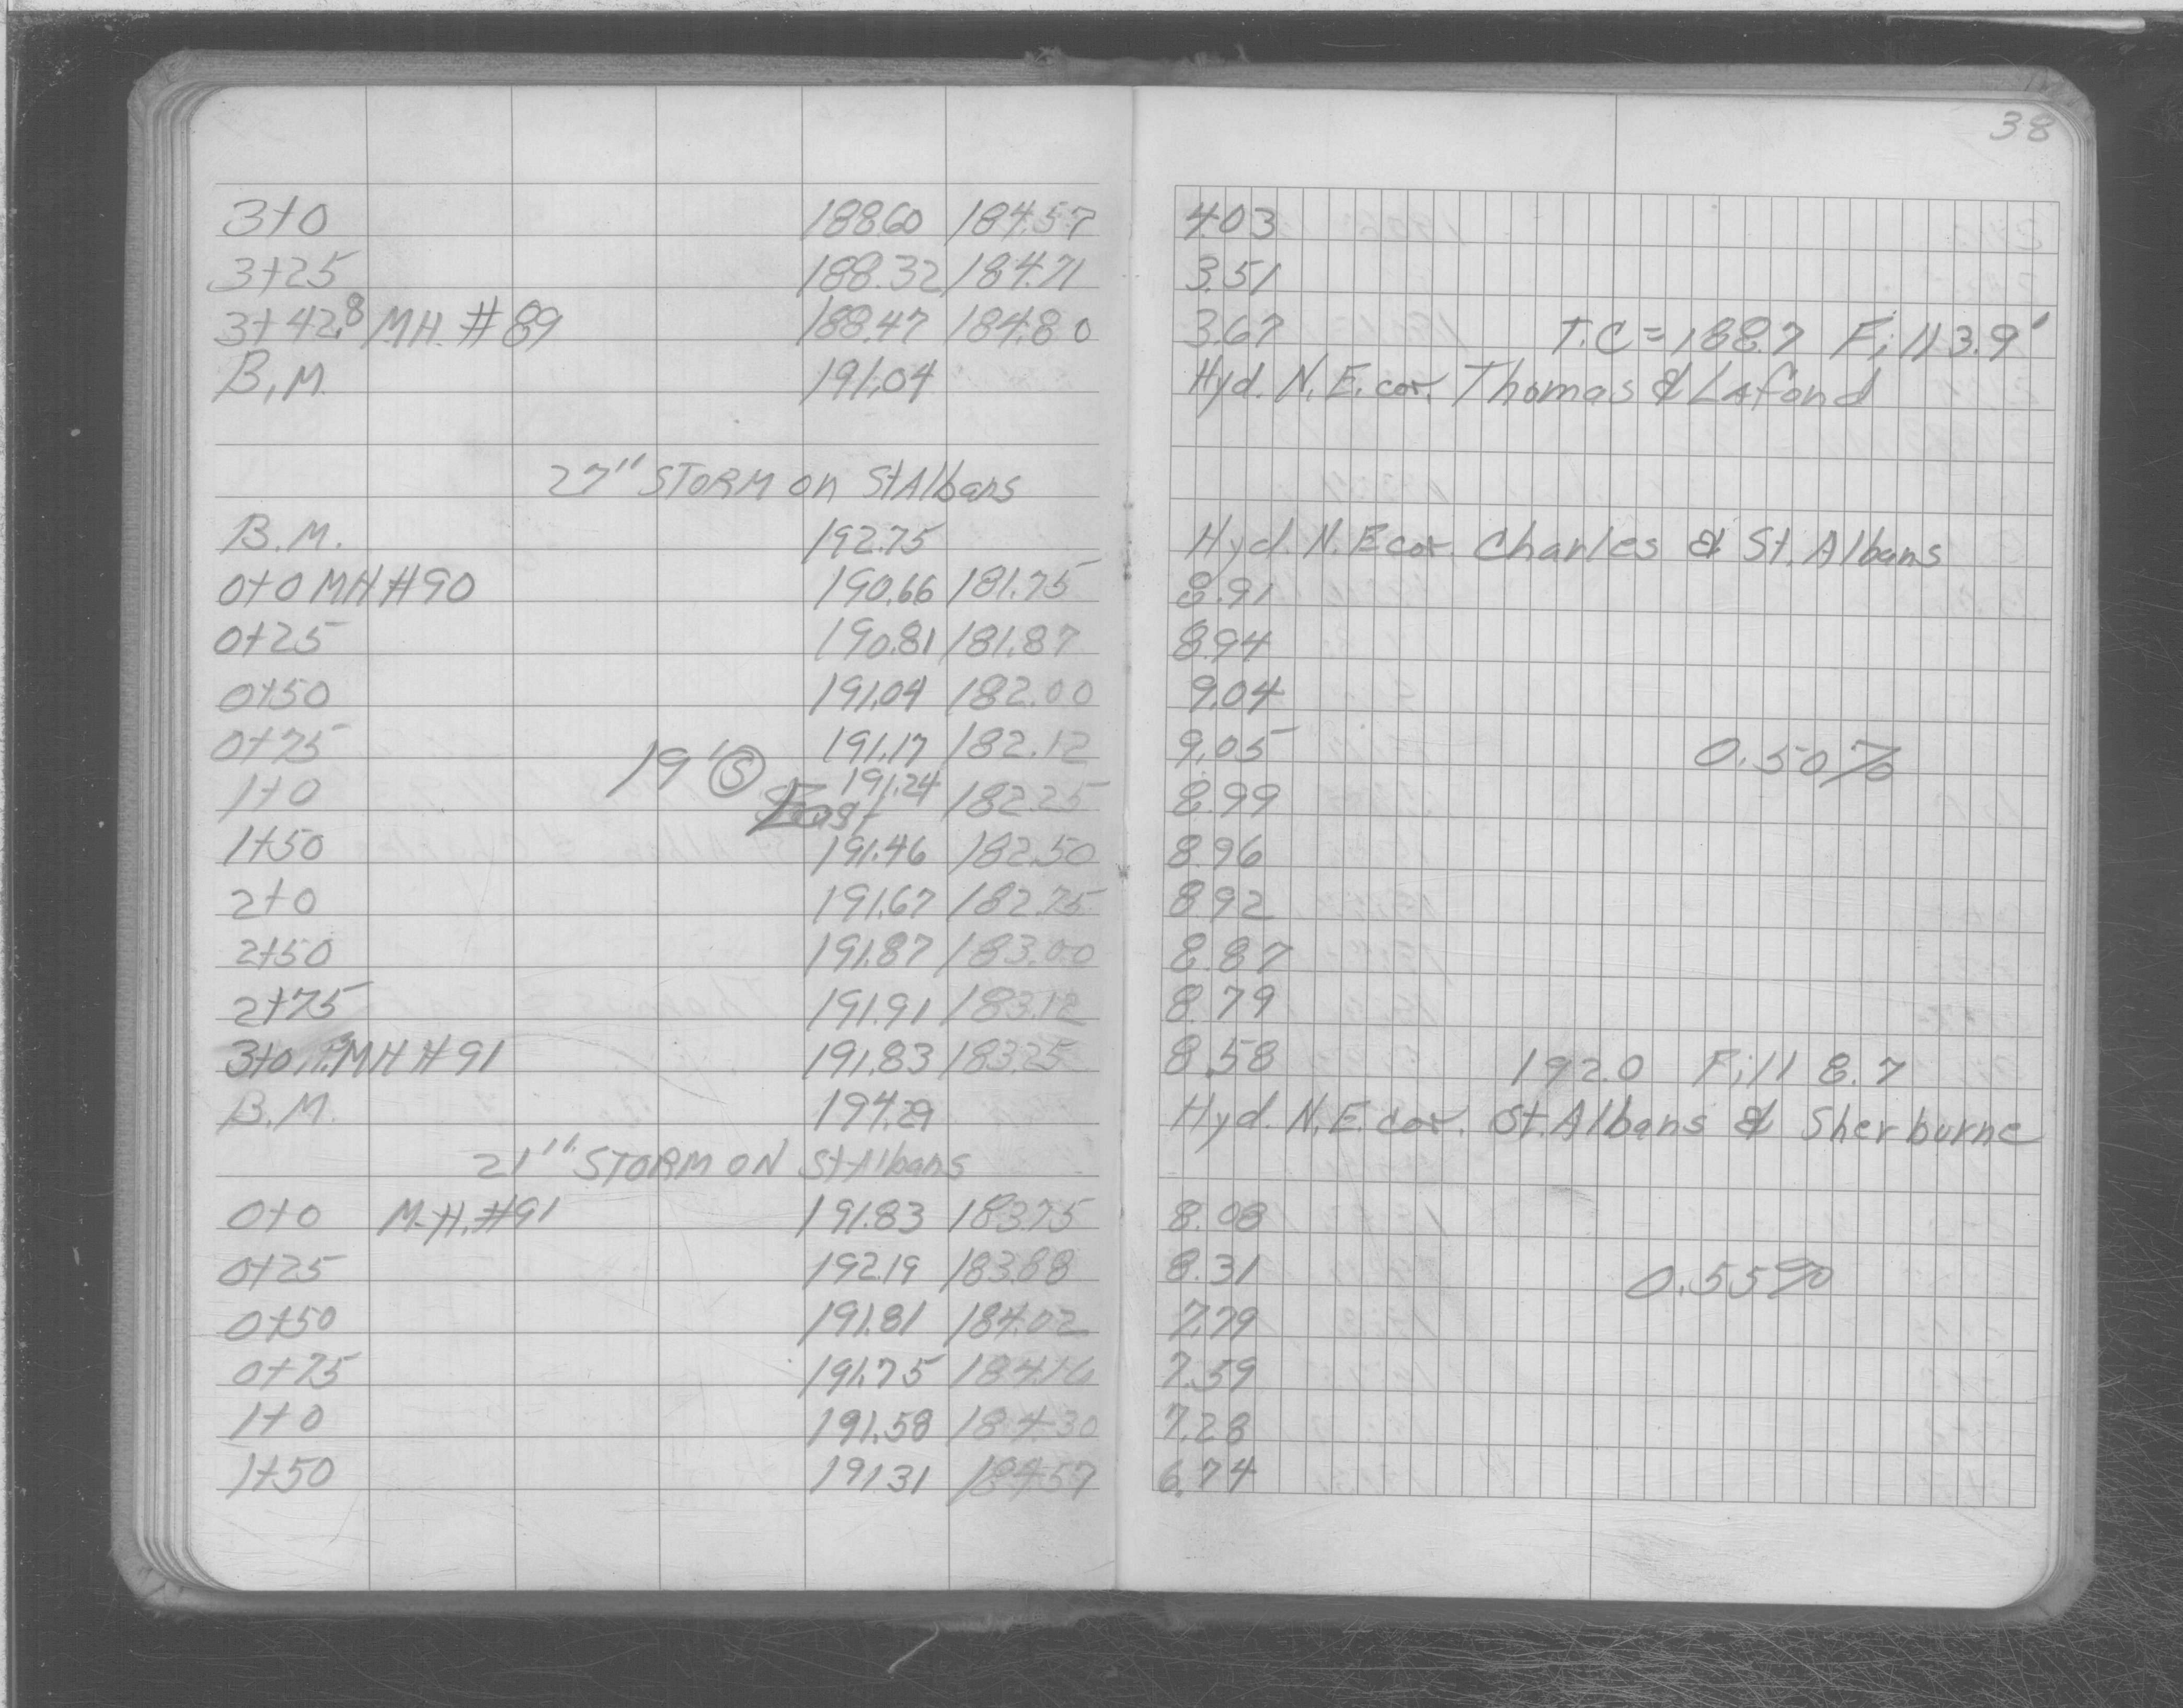 38
3+0 188.60 184.57 4.03
3+25 188.32 184.71 3.51
3+42.8 M.H. #89 188.47 184.80 3.67 T.C = 188.7 Fill 3.9'
B.M. 191.04 Hyd. N.E. cor. Thomas & Lafond
27" STORM on St Albans
B.M. 192.75 Hyd. N.E cor. Charles & St. Albans
0+0 MH #90 190.66 181.75 8.91
0+25 190.81 181.87 8.94
0+50 191.04 182.00 9.04
0+75 191.17 182.12 9.05 0.50%
19' Ⓢ East
1+0 191.24 182.25 8.99
1+50 191.46 182.50 8.96
2+0 191.67 182.75 8.92
2+50 191.87 183.00 8.87
2+75 191.91 183.12 8.79
3+0 MH #91 191.83 183.25 8.58 192.0 Fill 8.7
B.M. 194.29 Hyd. N.E. cor. St. Albans & Sherburne
21" STORM ON St Albans
0+0 M.H. #91 191.83 183.75 8.08
0+25 192.19 183.88 8.31 0.55%
0+50 191.81 184.02 7.79
0+75 191.75 184.16 7.59
1+0 191.58 184.30 7.28
1+50 191.31 184.57 6.74